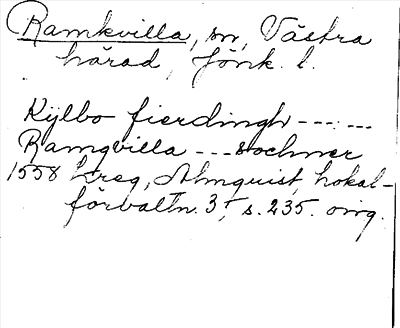 Ramkvilla, sn, Västra
härad, Jönk. l.
Kylbo fierdingh ------
Ramqvilla --- sochner
1558 Lreg, Almquist, Lokal-
förvaltn. 3, s. 235. omg.